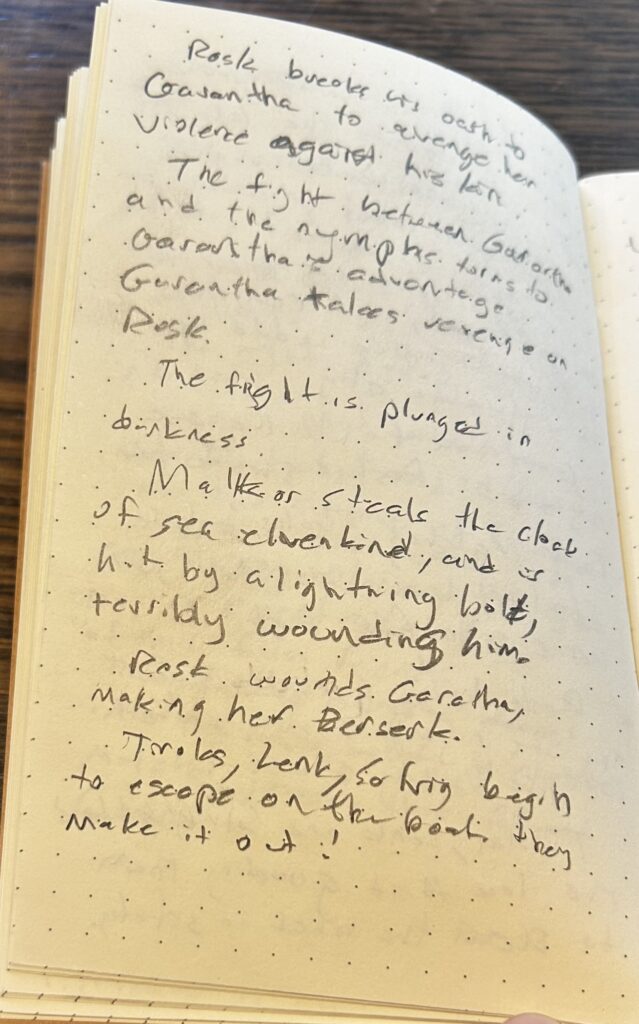 Rosk breaks his oath to
Garantha to avenge her
violence against his kin
The fight between Garantha
and the nymphs turns to
Garantha's advantage
Garantha takes revenge on
Rosk.
The fight is plunged in
darkness
Malkor steals the cloak
of sea elvenkind, and is
hit by a lightning bolt,
terribly wounding him.
Rosk wounds Garatha,
making her Berserk.
begin
to escape on the boat. they
make it out!